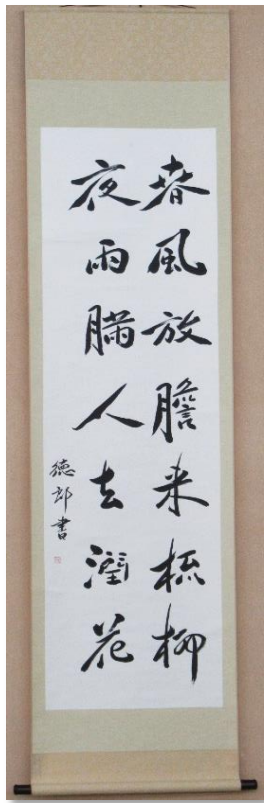 春風放膽来梳柳
夜雨瞞人去潤花
徳郎書